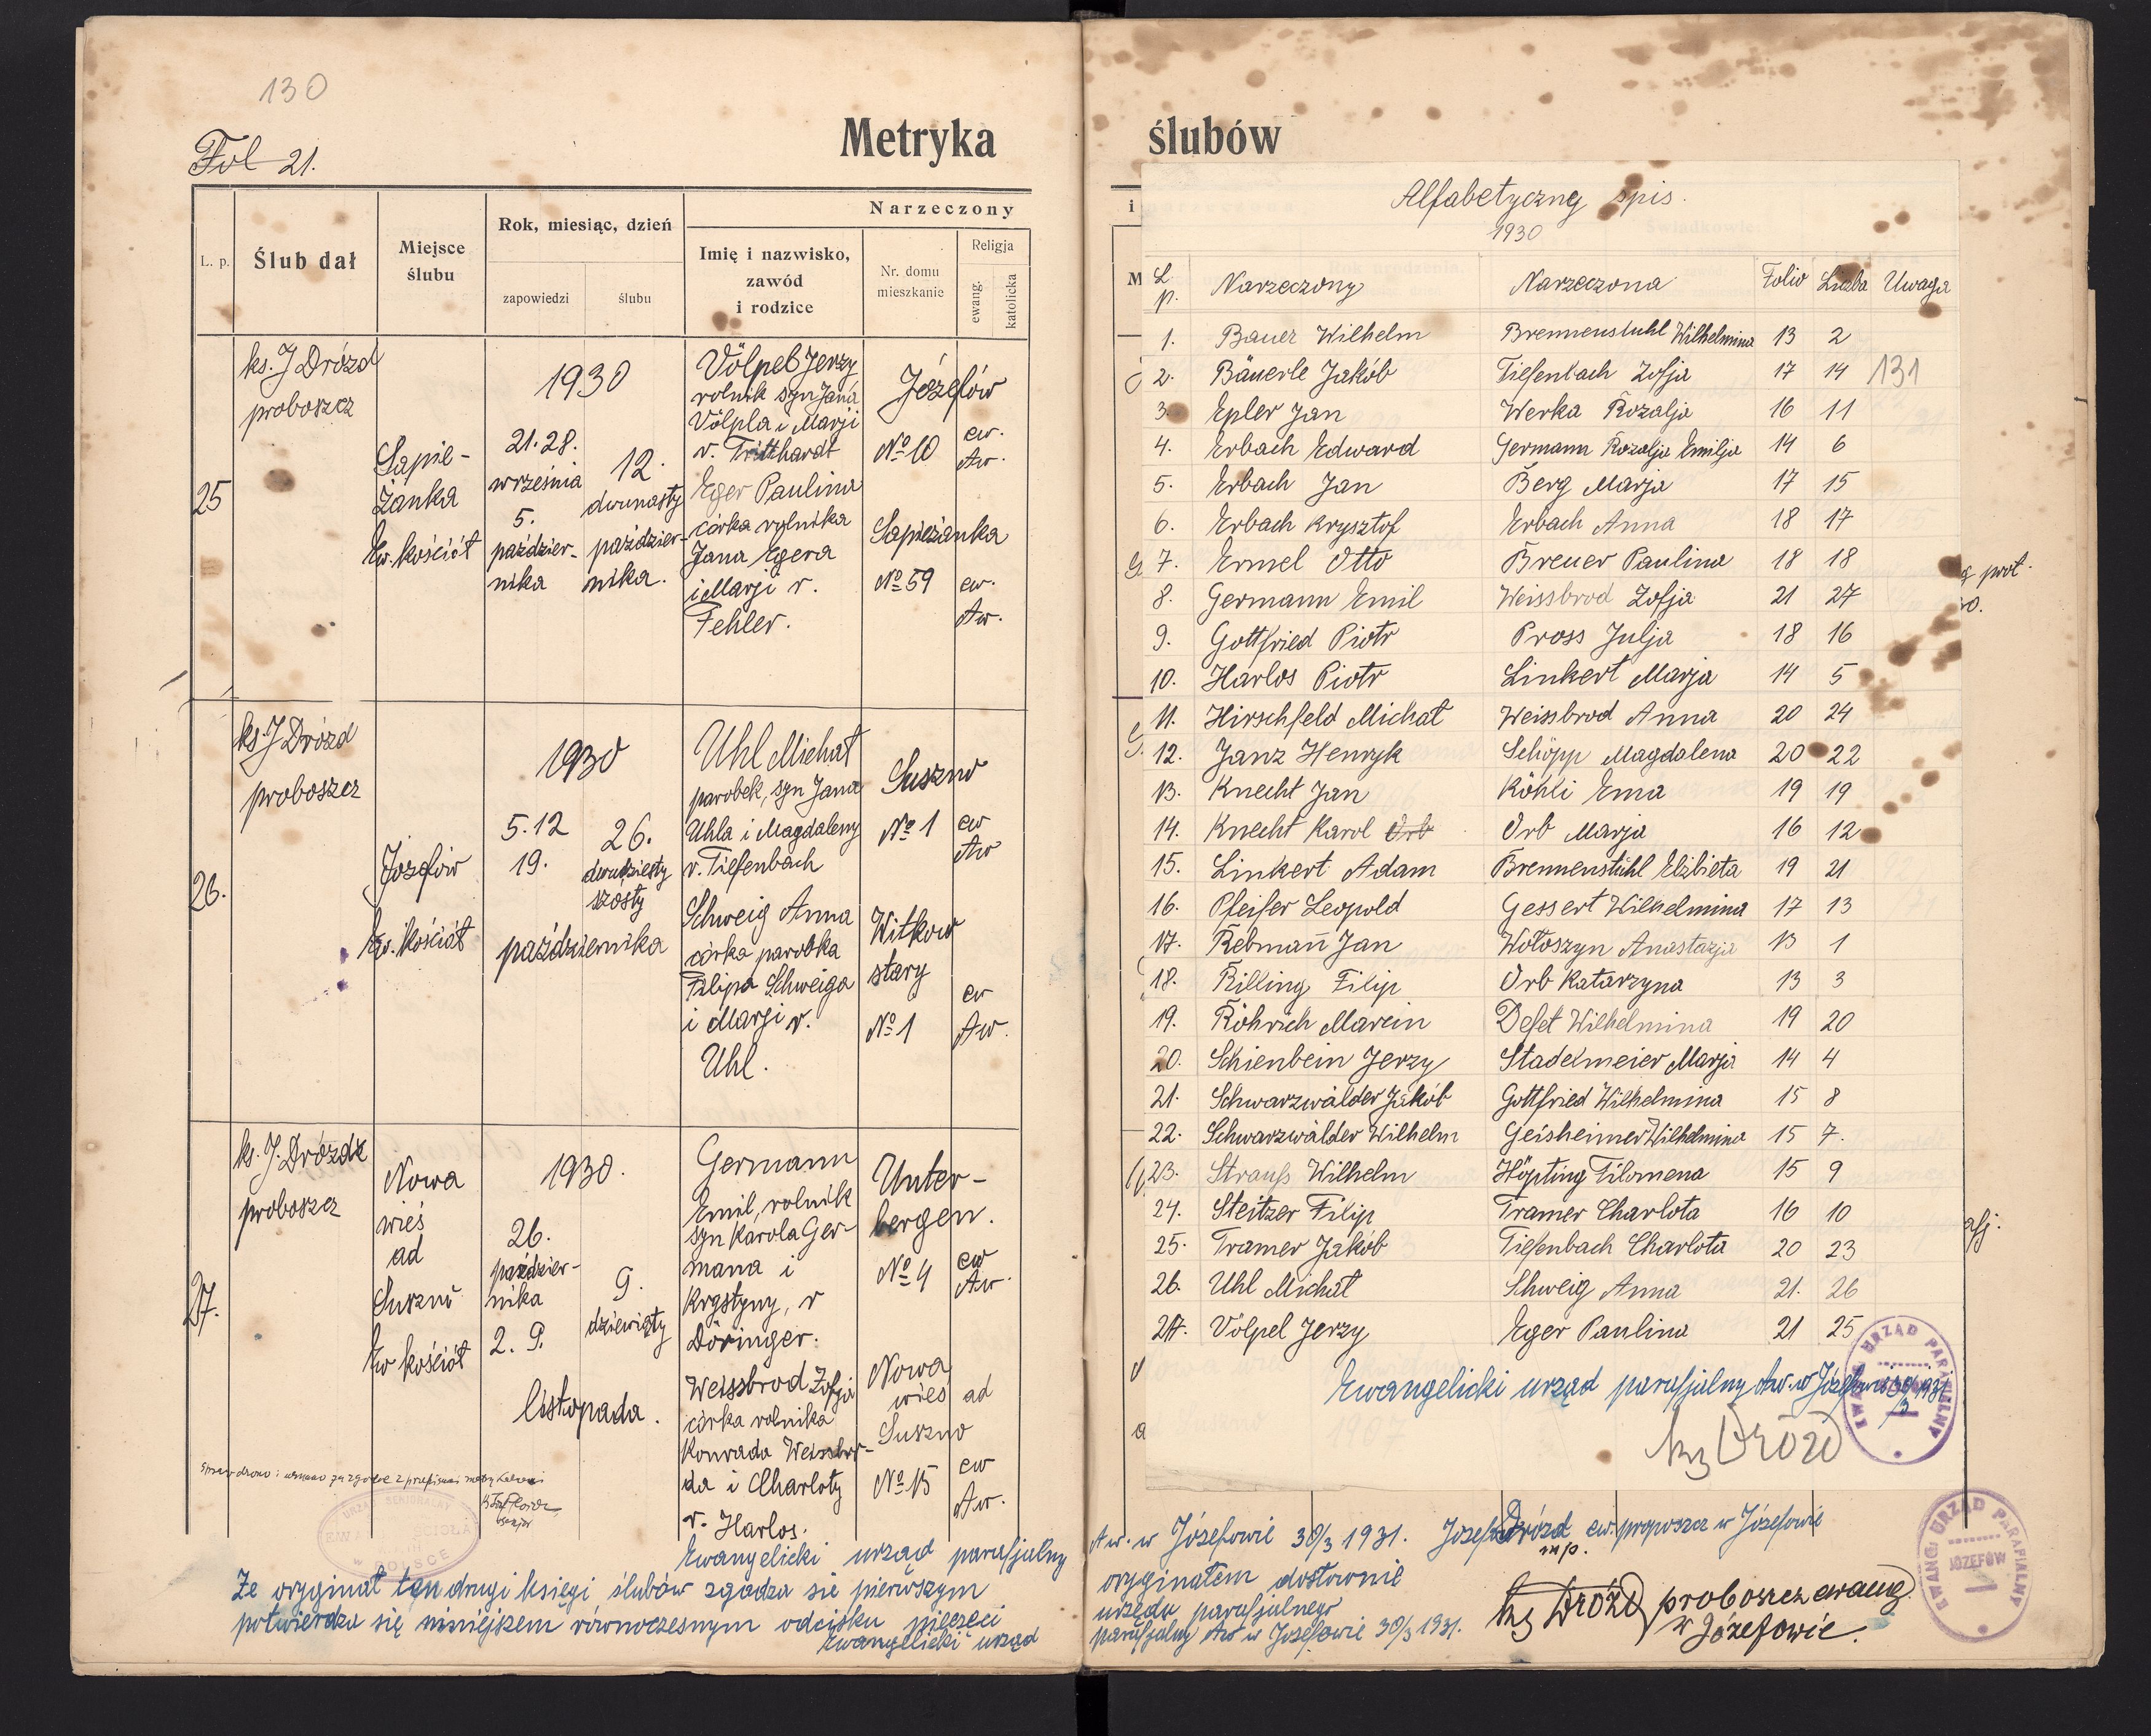 130
Fol 21.
Metryka
L. p.
Ślub dał
Miejsce
ślubu
Rok, miesiąc, dzień
zapowiedzi
ślubu
Narzeczony
Imię i nazwisko,
zawód
i rodzice
Nr. domu
mieszkanie
Religja
ewang.
katolicka
25
ks. J Drózd
proboszcz
Sapie-
żanka
Ew. kościół
1930
21. 28.
września
5.
paździer-
nika
12.
dwunasty
paździer-
nika.
Völpel Jerzy
rolnik syn Jana
Völpla i Marji
r. Tritthardt
Józefów
No 10
ew.
Aw.
Eger Paulina
córka rolnika
Jana Egera
i Marji r.
Fehler.
Sapieżanka
No 59
ew.
Aw.
26.
ks. J Drózd
proboszcz
Józefów
Ew. Kościół
1930
5. 12
19.
26.
dwudziesty
szosty
października
Uhl Michał
parobek, syn Jana
Uhla i Magdaleny
r. Tiefenbach
Suszno
No 1
ew
Aw
Schweig Anna
córka parobka
Filipa Schweiga
i Marji r.
Uhl.
Witkow
stary
No 1
ew
Aw.
27.
ks. J. Drózd
proboszcz
Nowa
wieś
ad
Suszno
Ew kościół
1930.
26.
paździer-
nika
2. 9.
9.
dziewiąty
listopada.
Germann
Emil, rolnik
syn Karola Ger-
mana i
Krystyny, r
Döringer.
Unter-
bergen.
No 4
ew
Aw.
Weissbrod Zofja
córka rolnika
Konrada Weissbro-
da i Charloty
r. Harlos.
Nowa
wieś ad
Suszno
No 15
ew
Aw.
Ewangelicki urząd parafjalny
Że oryginał ten drugi księgi ślubów zgadza się pierwszym
potwierdza się niniejszem równoczesnym odcisku pieczęci
Ewangelicki urząd
ślubów
Alfabetyczny spis.
1930
L. p. Narzeczony Narzeczona Folio Liczba Uwaga
1. Bauer Wilhelm Brennenstuhl Wilhelmina 13 2
2. Bäuerle Jakób Tiefenbach Zofja 17 14 131
3. Epler Jan Werka Rozalja 16 11
4. Erbach Edward Germann Rozalja Emilja 14 6
5. Erbach Jan Berg Marja 17 15
6. Erbach Krysztof Erbach Anna 18 17
7. Ermel Otto Breuer Paulina 18 18
8. Germann Emil Weissbrod Zofja 21 27
9. Gottfried Piotr Pross Julja 18 16
10. Harlos Piotr Linkert Marja 14 5
11. Hirschfeld Michał Weissbrod Anna 20 24
12. Janz Henryk Schöpp Magdalena 20 22
13. Knecht Jan Köhli Ema 19 19
14. Knecht Karol Orb Orb Marja 16 12
15. Linkert Adam Brennenstuhl Elżbieta 19 21
16. Pfeifer Leopold Gessert Wilhelmina 17 13
17. Rebmañ Jan Wołoszyn Anastazja 13 1
18. Rilling Filip Orb Katarzyna 13 3
19. Röhrich Marcin Deset Wilhelmina 19 20
20. Schienbein Jerzy Stadelmeier Marja 14 4
21. Schwarzwälder Jakób Gottfried Wilhelmina 15 8
22. Schwarzwälder Wilhelm Geisheimer Wilhelmina 15 7.
23. Strauß Wilhelm Höpting Filomena 15 9
24. Steitzer Filip Tramer Charlota 16 10
25. Tramer Jakób Tiefenbach Charlota 20 23
26. Uhl Michał Schweig Anna 21. 26
27. Völpel Jerzy Eger Paulina 21 25
Ewangelicki urząd parafjalny Aw. w Józefowie 30/3 1931
ks Drózd
EWANG. URZĄD PARAFJALNY
Aw. w Józefowie 30/3 1931. Józef Drózd ew. proposzcz w Józefowie
mp.
oryginałem dosłownie
urzędu parafjalnego
parafjalny Aw w Józefowie 30/3 1931.
ks Drózd proboszcz ewang.
w Józefowie.
EWANG. URZĄD PARAFJALNY
JÓZEFÓW